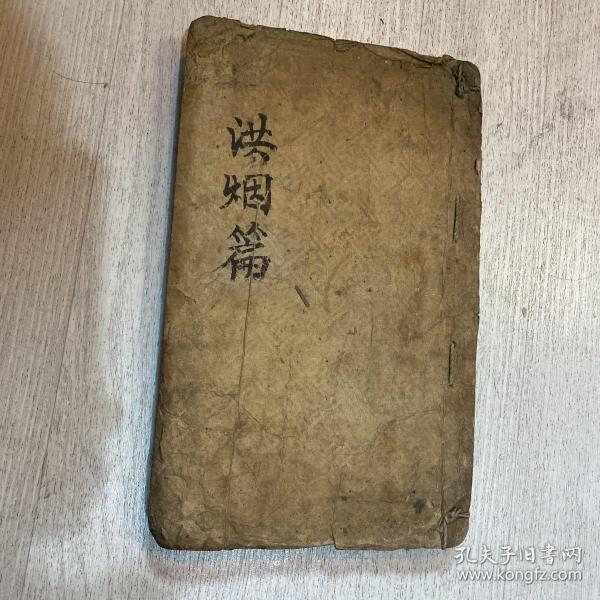 洪烟篇
孔夫子旧书网
www.kongfz.com